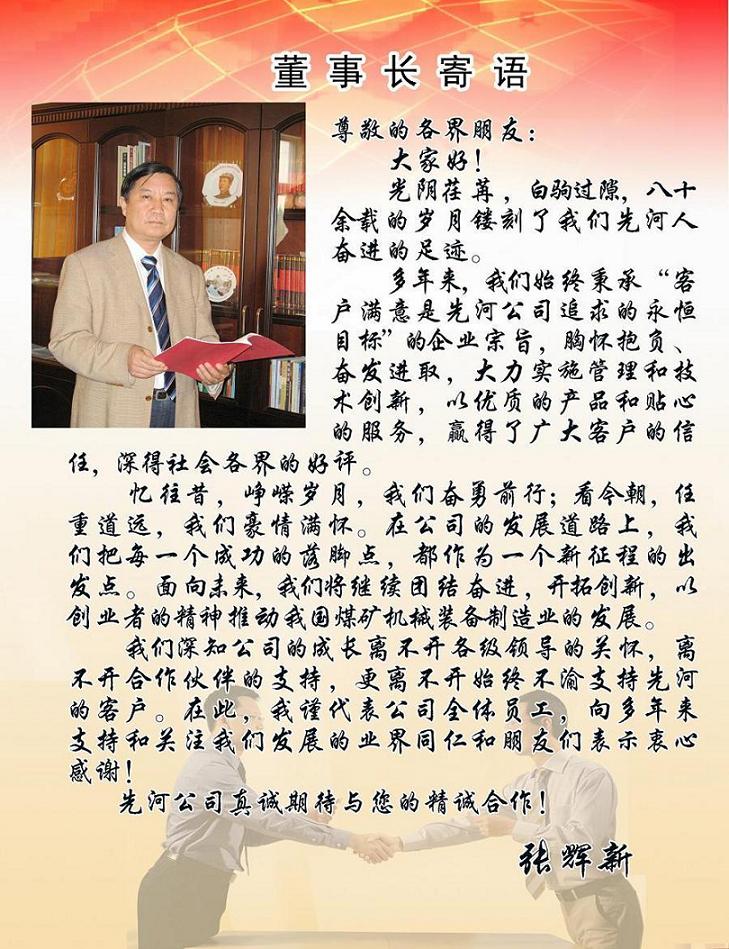 董事长寄语
尊敬的各界朋友：
大家好！
光阴荏苒，白驹过隙，八十
余载的岁月镂刻了我们先河人
奋进的足迹。
多年来，我们始终秉承“客
户满意是先河公司追求的永恒
目标”的企业宗旨，胸怀抱负、
奋发进取，大力实施管理和技
术创新，以优质的产品和贴心
的服务，赢得了广大客户的信
任，深得社会各界的好评。
忆往昔，峥嵘岁月，我们奋勇前行；看今朝，任
重道远，我们豪情满怀。在公司的发展道路上，我
们把每一个成功的落脚点，都作为一个新征程的出
发点。面向未来，我们将继续团结奋进，开拓创新，以
创业者的精神推动我国煤矿机械装备制造业的发展。
我们深知公司的成长离不开各级领导的关怀，离
不开合作伙伴的支持，更离不开始终不渝支持先河
的客户。在此，我谨代表公司全体员工，向多年来
支持和关注我们发展的业界同仁和朋友们表示衷心
感谢！
先河公司真诚期待与您的精诚合作！
张辉新